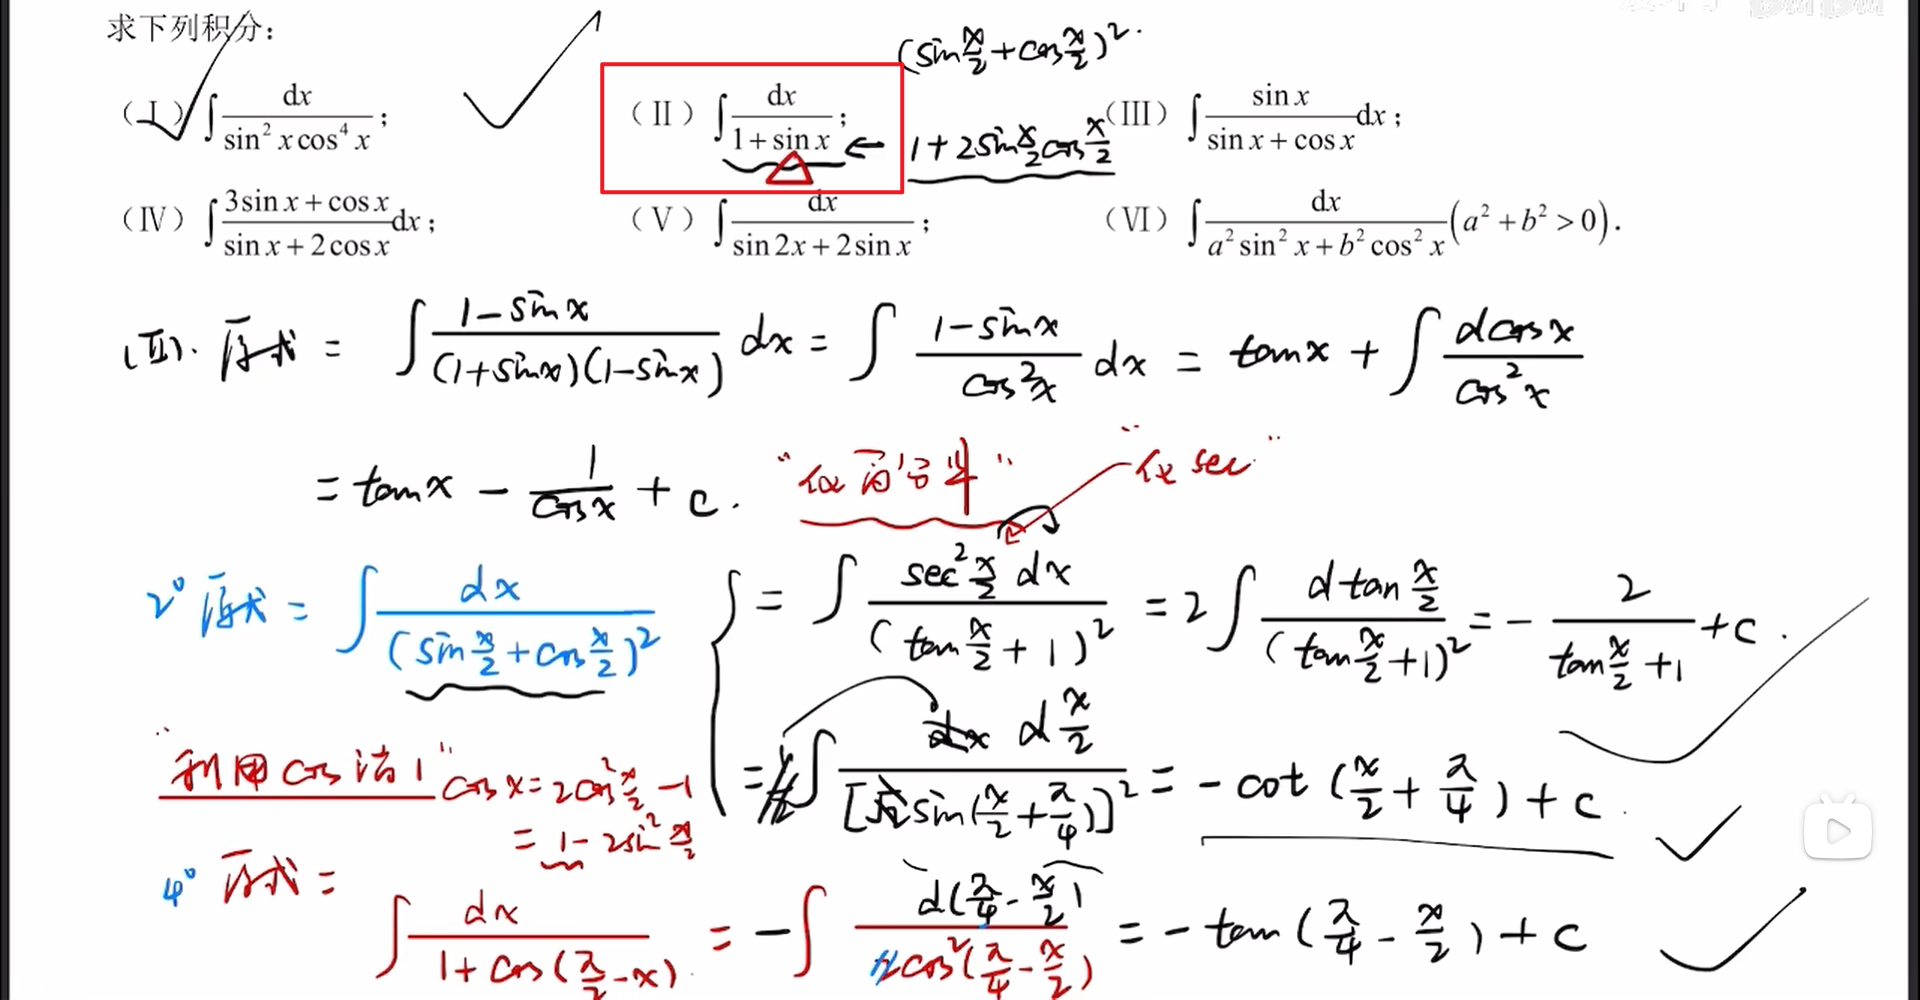 求下列积分：
(sin x/2 + cos x/2)².
（Ⅰ）∫ dx/(sin² x cos⁴ x)；
（Ⅱ）∫ dx/(1 + sin x)；
← 1 + 2sin x/2 cos x/2
（Ⅲ）∫ sin x/(sin x + cos x) dx；
（Ⅳ）∫ (3sin x + cos x)/(sin x + 2cos x) dx；
（Ⅴ）∫ dx/(sin 2x + 2sin x)；
（Ⅵ）∫ dx/(a² sin² x + b² cos² x) (a² + b² > 0).
(Ⅱ). 原式 = ∫ (1 - sin x)/((1 + sin x)(1 - sin x)) dx = ∫ (1 - sin x)/(cos² x) dx = tan x + ∫ d cos x/(cos² x)
= tan x - 1/cos x + C.
"化 sec"
2° 原式 = ∫ dx/(sin x/2 + cos x/2)²
= ∫ sec² x/2 dx/(tan x/2 + 1)² = 2∫ d tan x/2/(tan x/2 + 1)² = - 2/(tan x/2 + 1) + C.
= ∫ d x/2/[sin(x/2 + π/4)]² = - cot(x/2 + π/4) + C.
"利用 cos 消 1" cos x = 2cos² x/2 - 1
= 1 - 2sin² x/2
4° 原式 =
∫ dx/(1 + cos(π/2 - x)) = - ∫ d(π/4 - x/2)/(cos²(π/4 - x/2)) = - tan(π/4 - x/2) + C